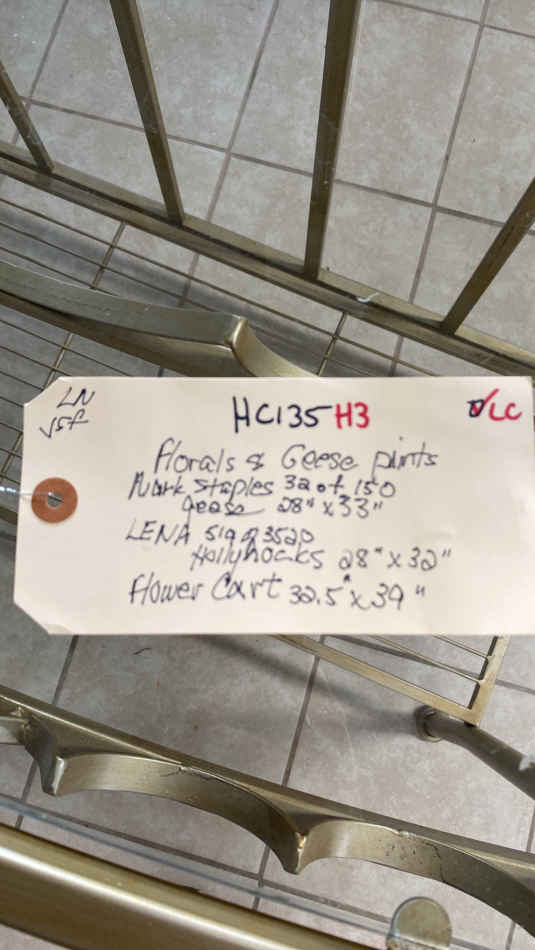 LN
VSF
HC135 H3
LC
Florals & Geese prints
Mark Staples 32 of 150
geese 28" x 33"
LENA sig
Hollyhocks 28" x 32"
Flower Cart 32.5" x 39"